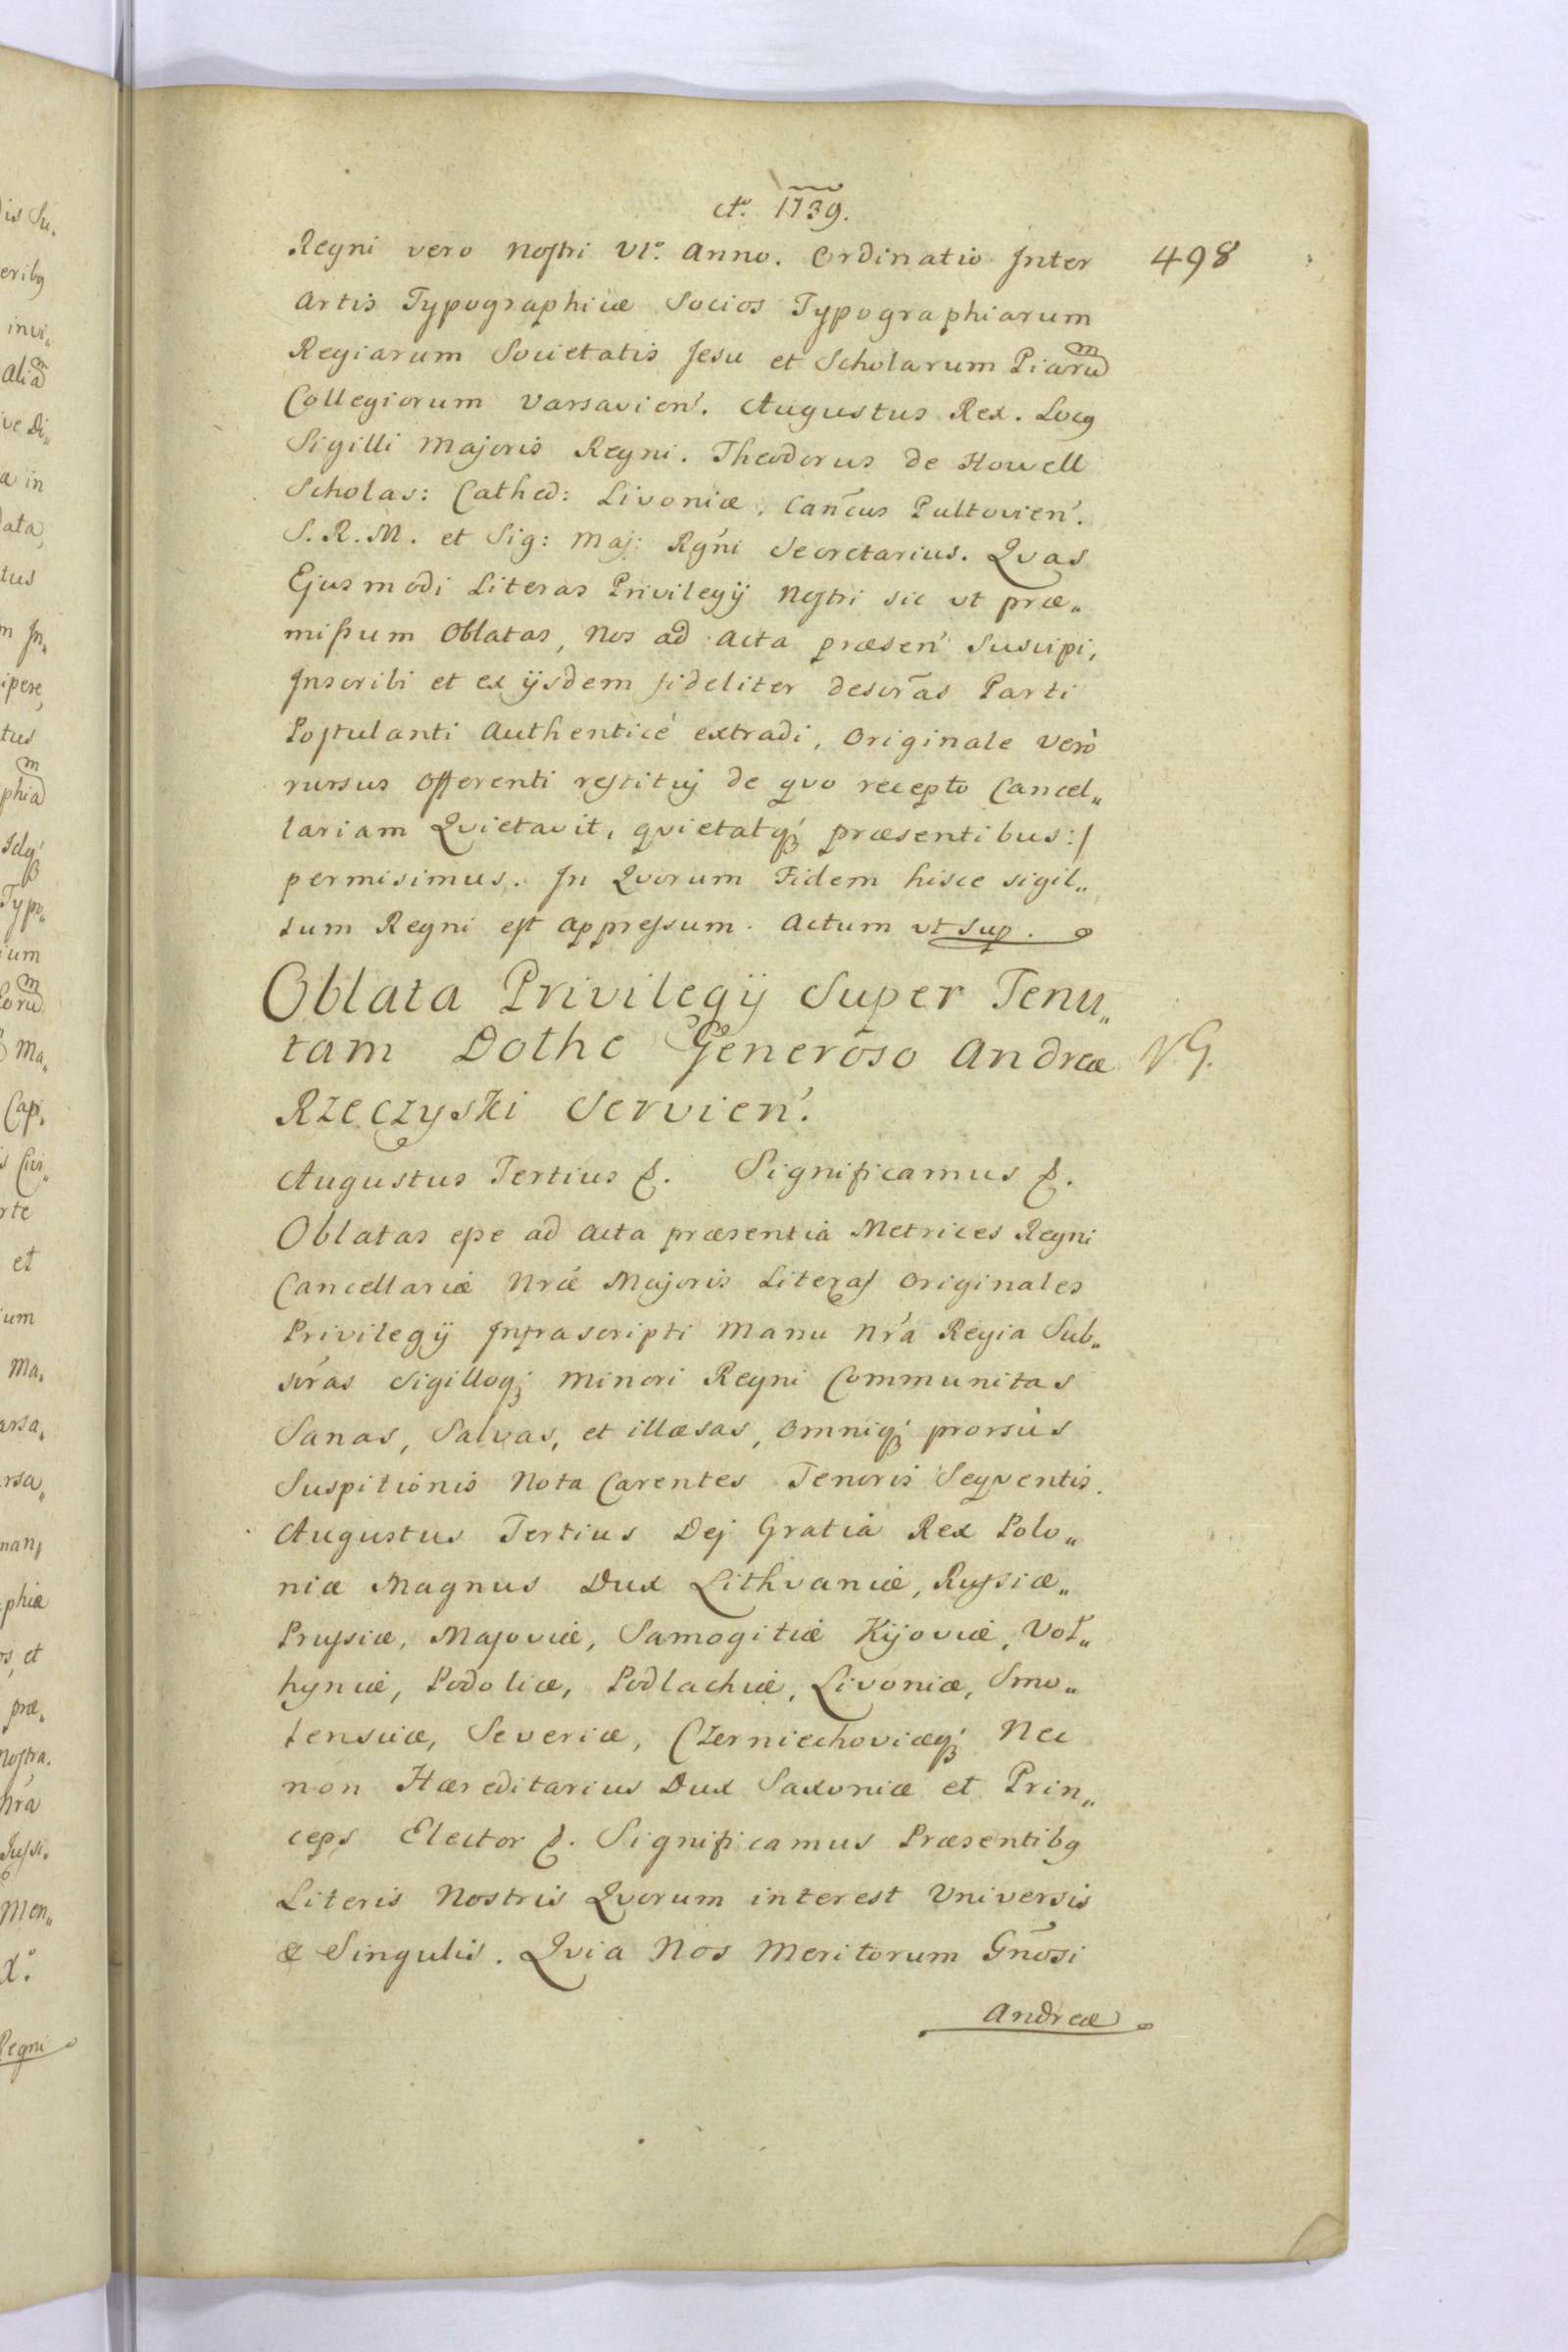 Aº. 1739.
498
Regni vero Nostri VIº. Anno. Ordinatio Inter
Artis Typographicæ Socios Typographiarum
Regiarum Societatis Jesu et Scholarum Piarum
Collegiorum Varsavien'. Augustus Rex. Locq
Sigilli Majoris Regni. Theodorus de Howell
Scholas: Cathed: Livoniæ. Can̄cus Pultovien'.
S. R. M. et Sig: Maj: Rg̃ni Secretarius. Qvas
Ejusmodi Literas Privilegÿ Nostri sic ut præ„
missum Oblatas, Nos ad Acta præsen' Suscipi,
Inscribi et ex ÿsdem fideliter descr̃as Parti
Postulanti Authenticè extradi, Originale Verò
rursus Offerenti restituj de qvo recepto Cancel„
lariam Qvietavit, qvietatq; præsentibus:/
permisimus. In Qvorum Fidem hisce sigil„
lum Regni est appressum. Actum ut sup.
Oblata Privilegÿ Super Tenu„
tam Dothe Generoso Andreæ
VG.
Rzeczyski Servien'.
Augustus Tertius &. Significamus &.
Oblatas esse ad Acta præsentia Metrices Regni
Cancellariæ Nr̃æ Majoris Literas Originales
Privilegÿ Infrascripti Manu Nr̃a Regia Sub„
scr̃as Sigilloq; Minori Regni Communitas
Sanas, Salvas, et illæsas, Omniq; prorsùs
Suspitionis Nota Carentes Tenoris Seqventis.
Augustus Tertius Dej Gratiâ Rex Polo„
niæ Magnus Dux Lithvaniæ, Russiæ„
Prussiæ, Masoviæ, Samogitiæ Kijoviæ, Vol„
hyniæ, Podoliæ, Podlachiæ, Livoniæ, Smo„
lensciæ, Severiæ, Czerniechoviæq; Nec
non Hæreditarius Dux Saxoniæ et Prin„
ceps Elector &. Significamus Præsentibq
Literis Nostris Qvorum interest Universis
& Singulis. Qvia Nos Meritorum Gñosi
Andreæ